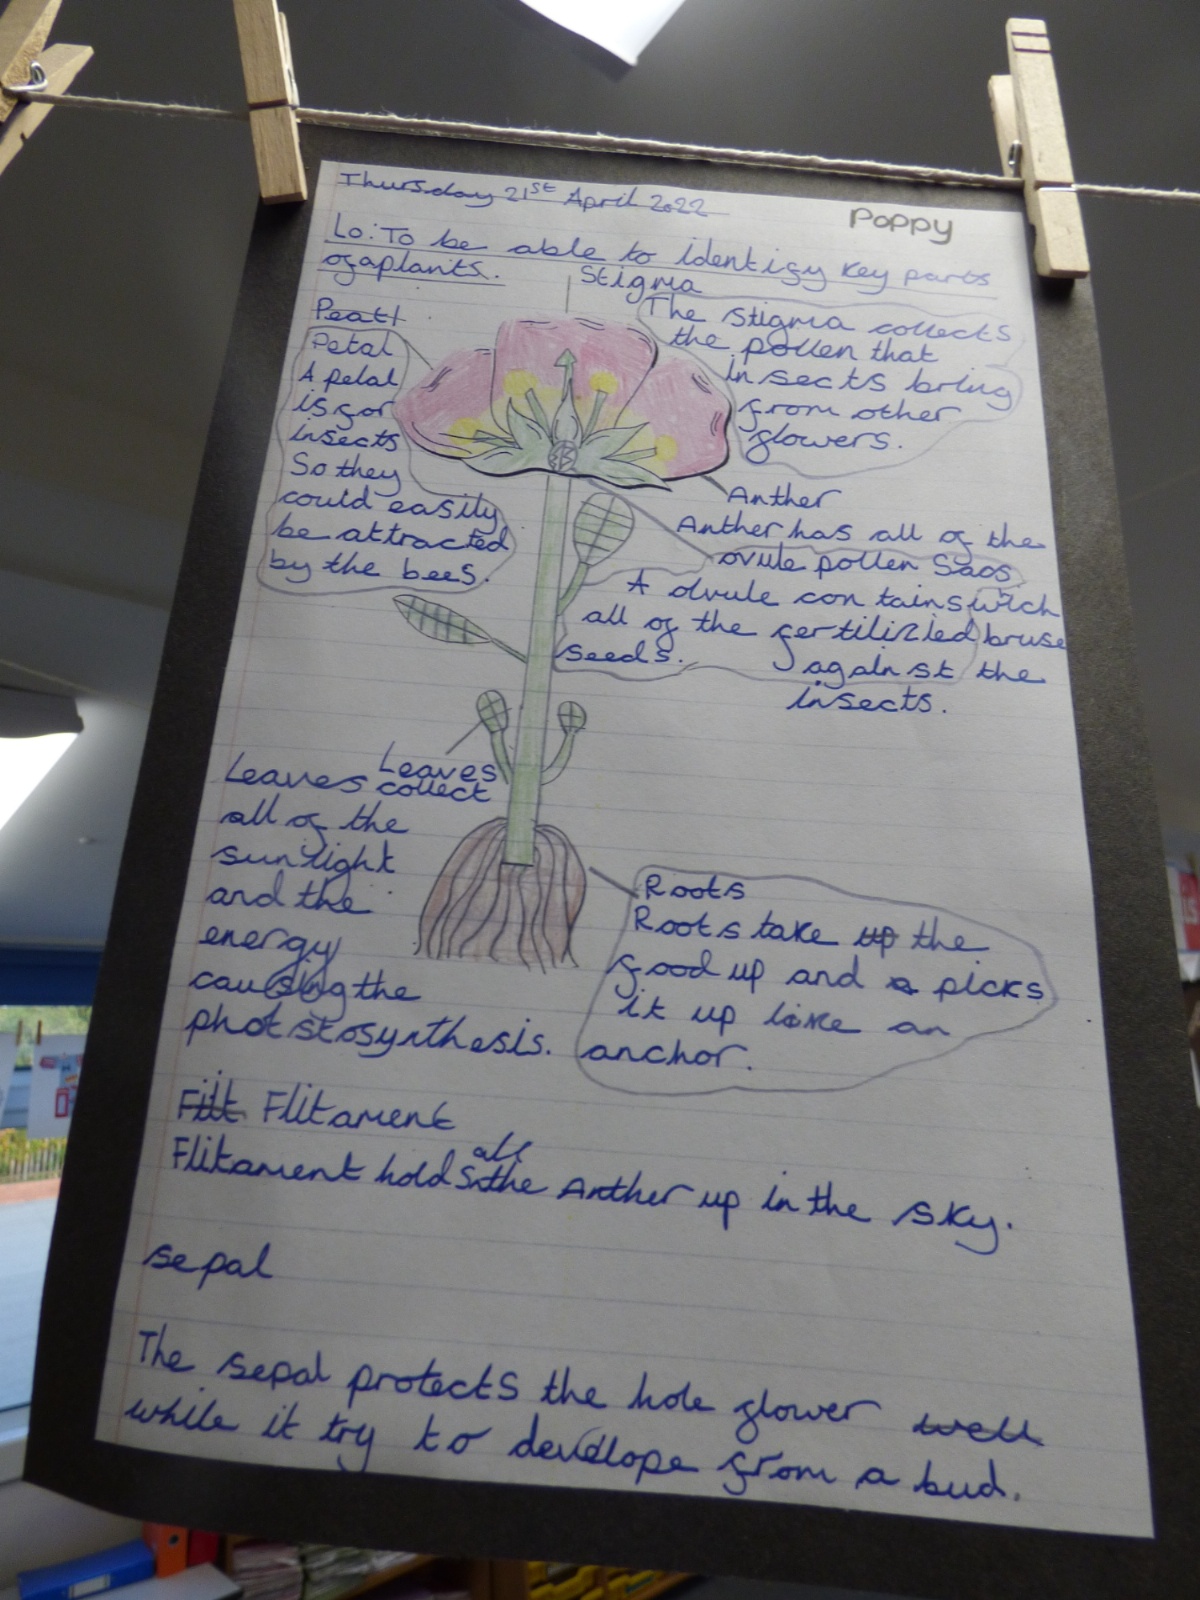 Thursday 21st April 2022
Poppy
Lo: To be able to identify key parts
of a plants.
Stigma
The stigma collects
the pollen that
insects bring
from other
flowers.
Petal
A petal
is for
insects
So they
could easily
be attracted
by the bees.
Anther
Anther has all of the
pollen Saos
wich
bruse
against the
insects.
ovule
A ovule contains
all of the fertilizied
seeds.
Leaves
Leaves collect
all of the
sunlight
and the
energy
causing the
photstosynthesis.
Roots
Roots take the
food up and picks
it up like an
anchor.
Flitament
Flitament holds all the Anther up in the sky.
sepal
The sepal protects the hole flower
while it try to devélope from a bud.